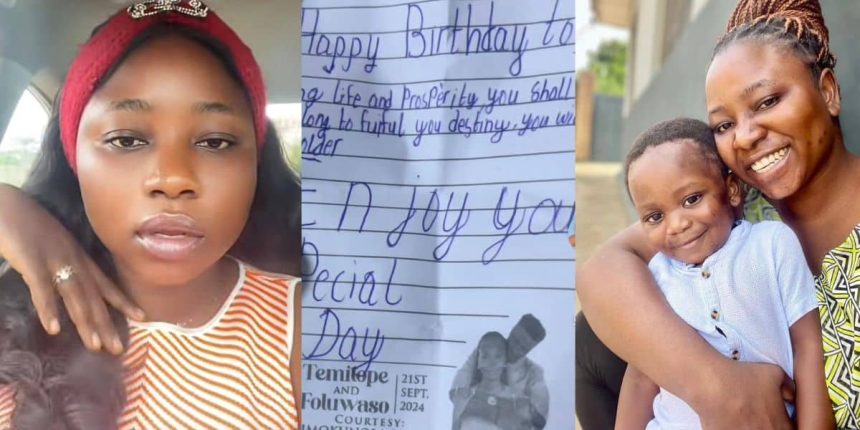 Happy Birthday to
life and Prosperity you shall
long to fufull you destiny. you wi
older
Enjoy you
Special
Day
Temitope
AND
Foluwaso
COURTESY:
21ST
SEPT,
2024